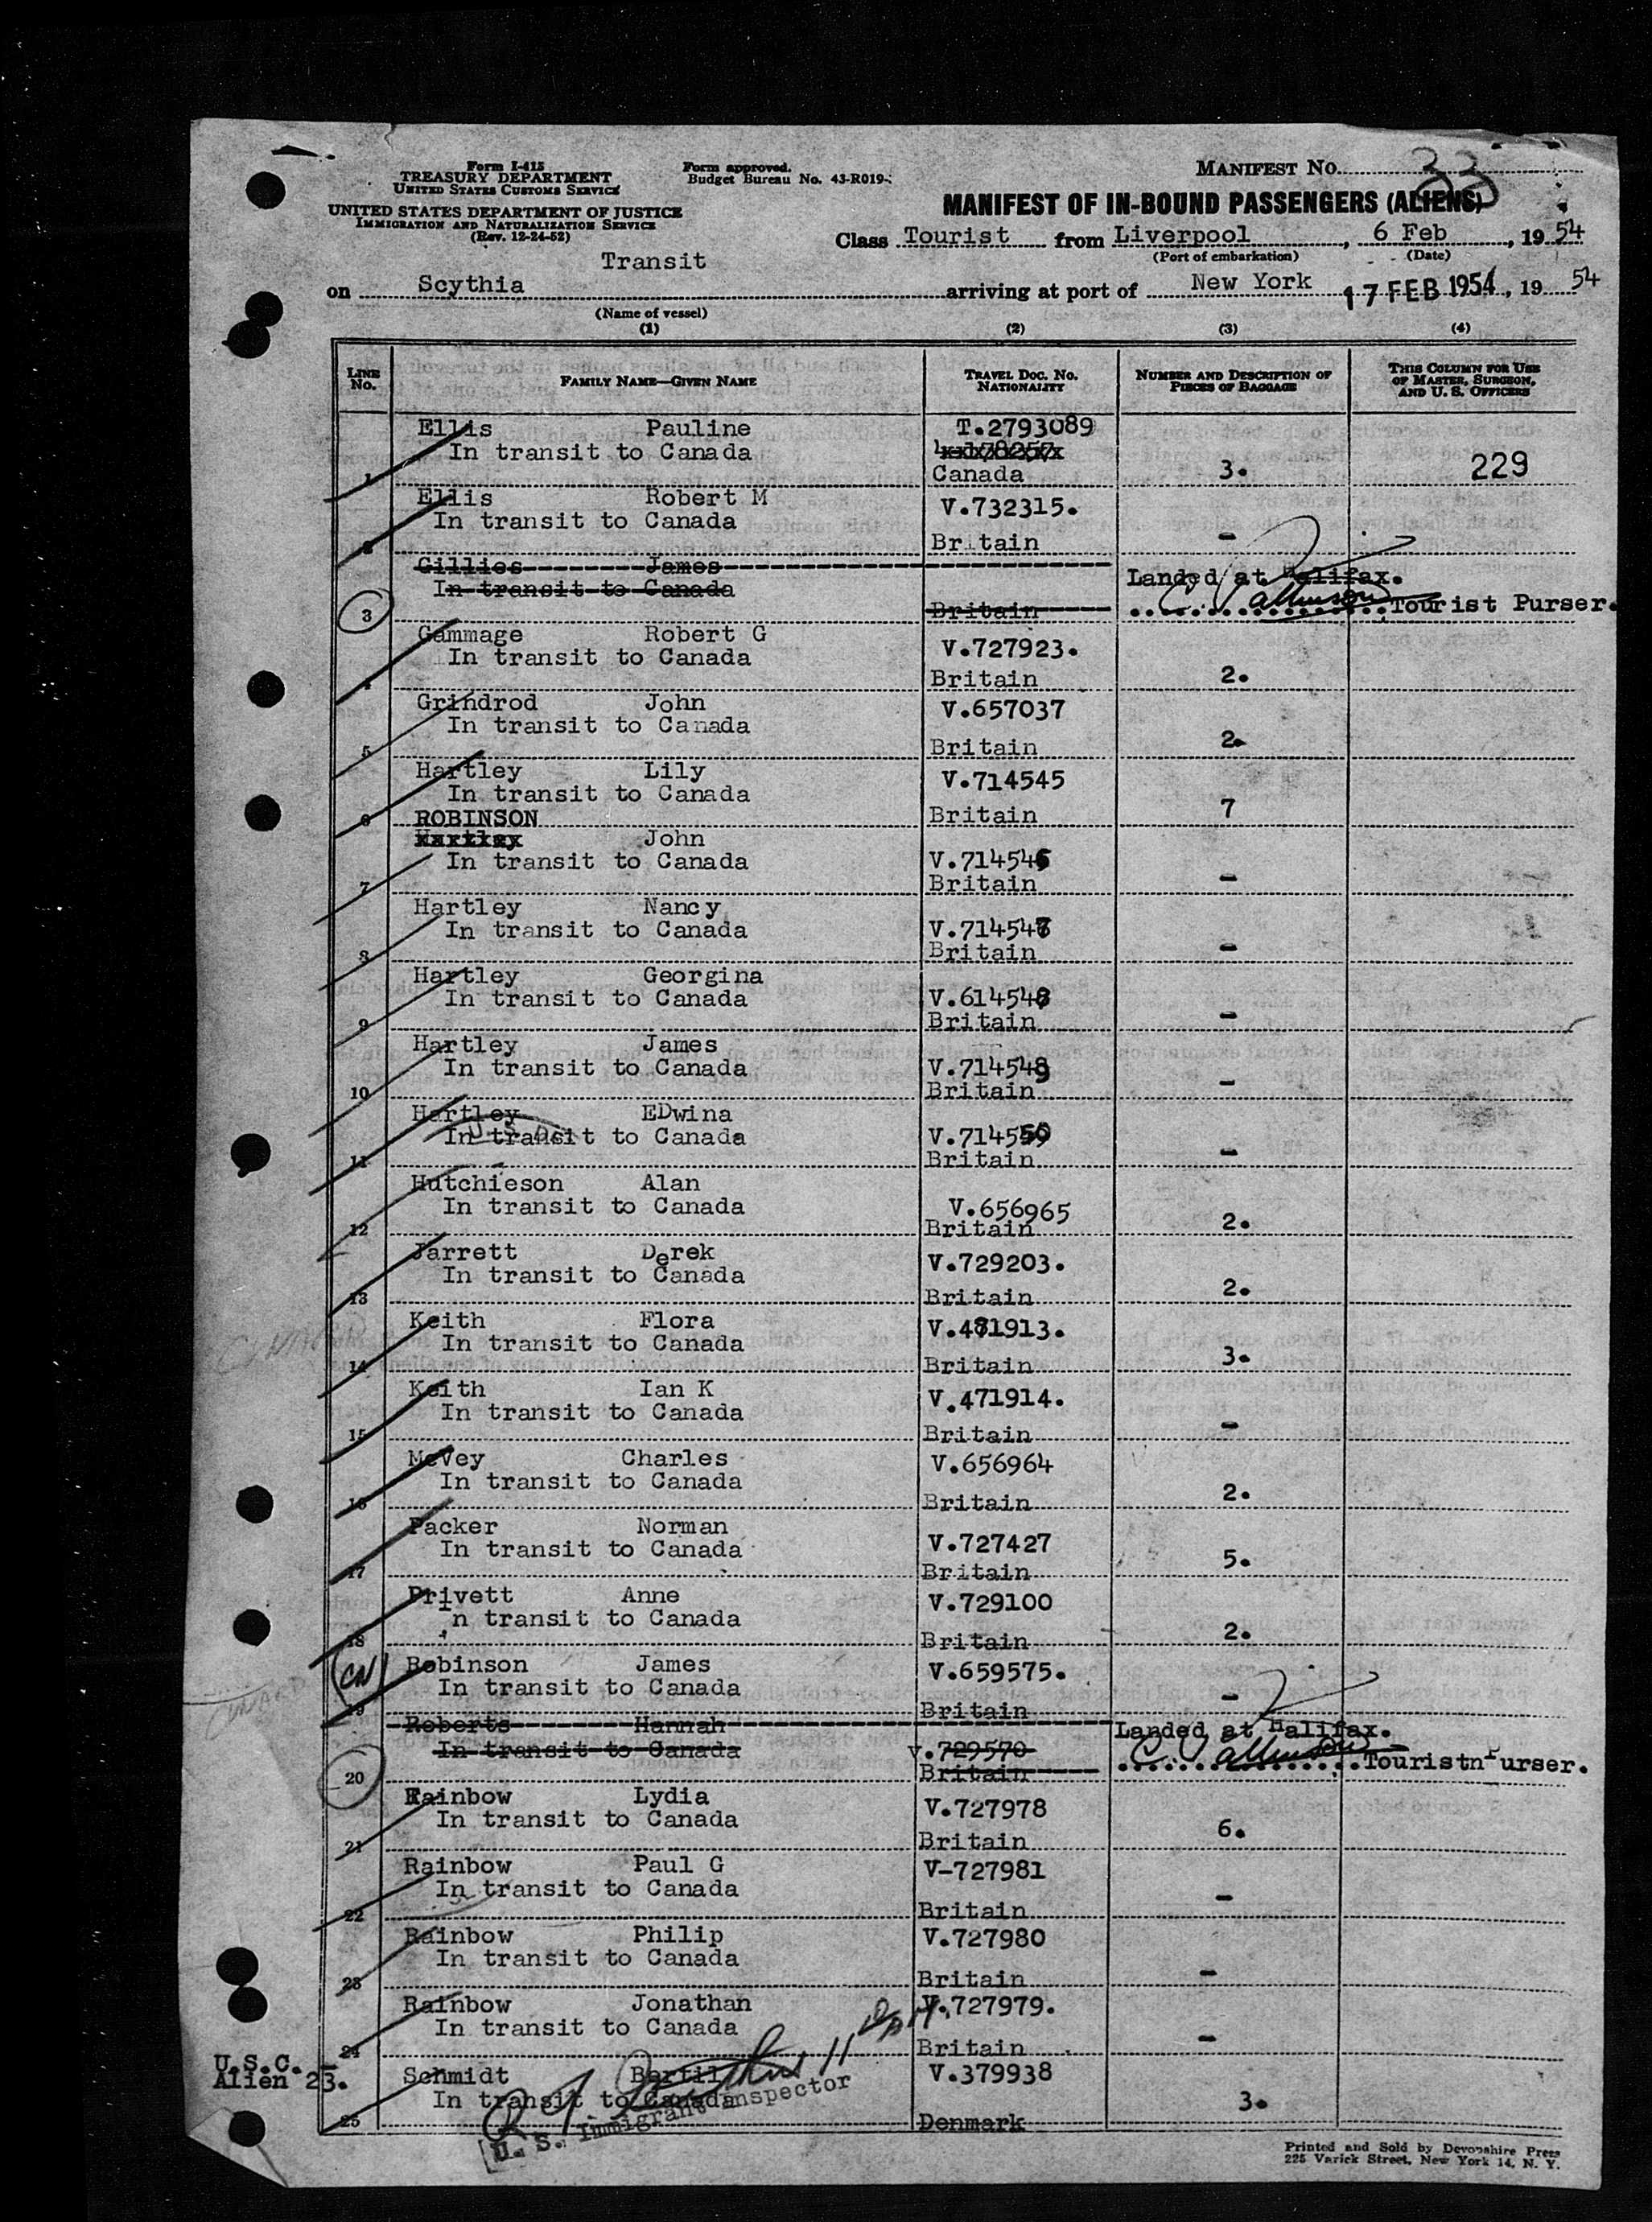 Form I-415
TREASURY DEPARTMENT
UNITED STATES CUSTOMS SERVICE
UNITED STATES DEPARTMENT OF JUSTICE
IMMIGRATION AND NATURALIZATION SERVICE
(Rev. 12-24-52)
Form approved.
Budget Bureau No. 43-R019-
MANIFEST No. 33
MANIFEST OF IN-BOUND PASSENGERS (ALIENS)
Class Tourist from Liverpool, 6 Feb, 19 54
(Port of embarkation) (Date)
Transit
on Scythia arriving at port of New York 17 FEB 1954, 19 54
(Name of vessel)
(1) (2) (3) (4)
LINE No.
FAMILY NAME—GIVEN NAME
TRAVEL DOC. No. NATIONALITY
NUMBER AND DESCRIPTION OF PIECES OF BAGGAGE
THIS COLUMN FOR USE OF MASTER, SURGEON, AND U. S. OFFICERS
Ellis Pauline T.2793089
In transit to Canada
1 Canada 3. 229
Ellis Robert M V.732315.
In transit to Canada
2 Britain -
Gillies James
In transit to Canada Landed at Halifax.
3 Britain Tourist Purser.
Gammage Robert G V.727923.
In transit to Canada
4 Britain 2.
Grindrod John V.657037
In transit to Canada
5 Britain 2.
Hartley Lily V.714545
In transit to Canada
6 Britain 7
ROBINSON
Hartley John
In transit to Canada V.714546
7 Britain -
Hartley Nancy
In transit to Canada V.714547
8 Britain -
Hartley Georgina
In transit to Canada V.614548
9 Britain -
Hartley James
In transit to Canada V.714549
10 Britain -
Hartley EDwina
In transit to Canada V.714550
11 Britain -
Hutchieson Alan
In transit to Canada V.656965
12 Britain 2.
Jarrett Derek V.729203.
In transit to Canada
13 Britain 2.
Keith Flora V.471913.
In transit to Canada
14 Britain 3.
Keith Ian K V.471914.
In transit to Canada
15 Britain -
McVey Charles V.656964
In transit to Canada
16 Britain 2.
Packer Norman V.727427
In transit to Canada
17 Britain 5.
Privett Anne V.729100
In transit to Canada
18 Britain 2.
CN
Robinson James V.659575.
In transit to Canada
19 Britain -
Roberts Hannah Landed at Halifax.
In transit to Canada V.729570
20 Britain Touristn Purser.
Rainbow Lydia V.727978
In transit to Canada
21 Britain 6.
Rainbow Paul G V-727981
In transit to Canada
22 Britain -
Rainbow Philip V.727980
In transit to Canada
23 Britain -
Rainbow Jonathan V.727979.
In transit to Canada
24 Britain -
U.S.C. -
Alien 23.
Schmidt Bertil V.379938
In transit to Canada 3.
25 Denmark
U. S. Immigrant Inspector
Printed and Sold by Devonshire Press
225 Varick Street, New York 14, N. Y.